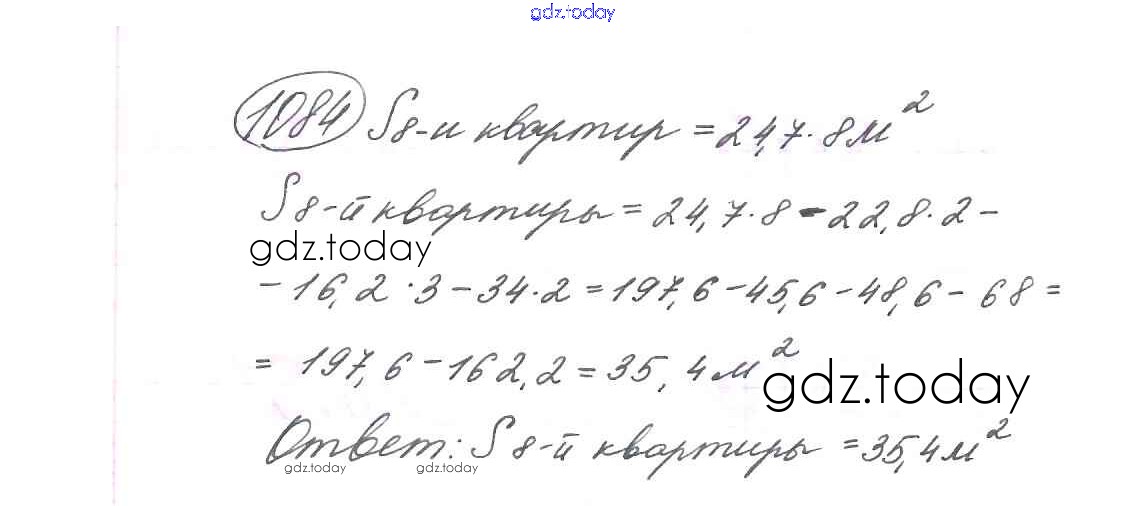 gdz.today
1084 S 8-и квартир = 24,7 · 8 м²
S 8-й квартиры = 24,7 · 8 - 22,8 · 2 -
gdz.today
- 16,2 · 3 - 34 · 2 = 197,6 - 45,6 - 48,6 - 68 =
= 197,6 - 162,2 = 35,4 м²
gdz.today
Ответ: S 8-й квартиры = 35,4 м²
gdz.today gdz.today